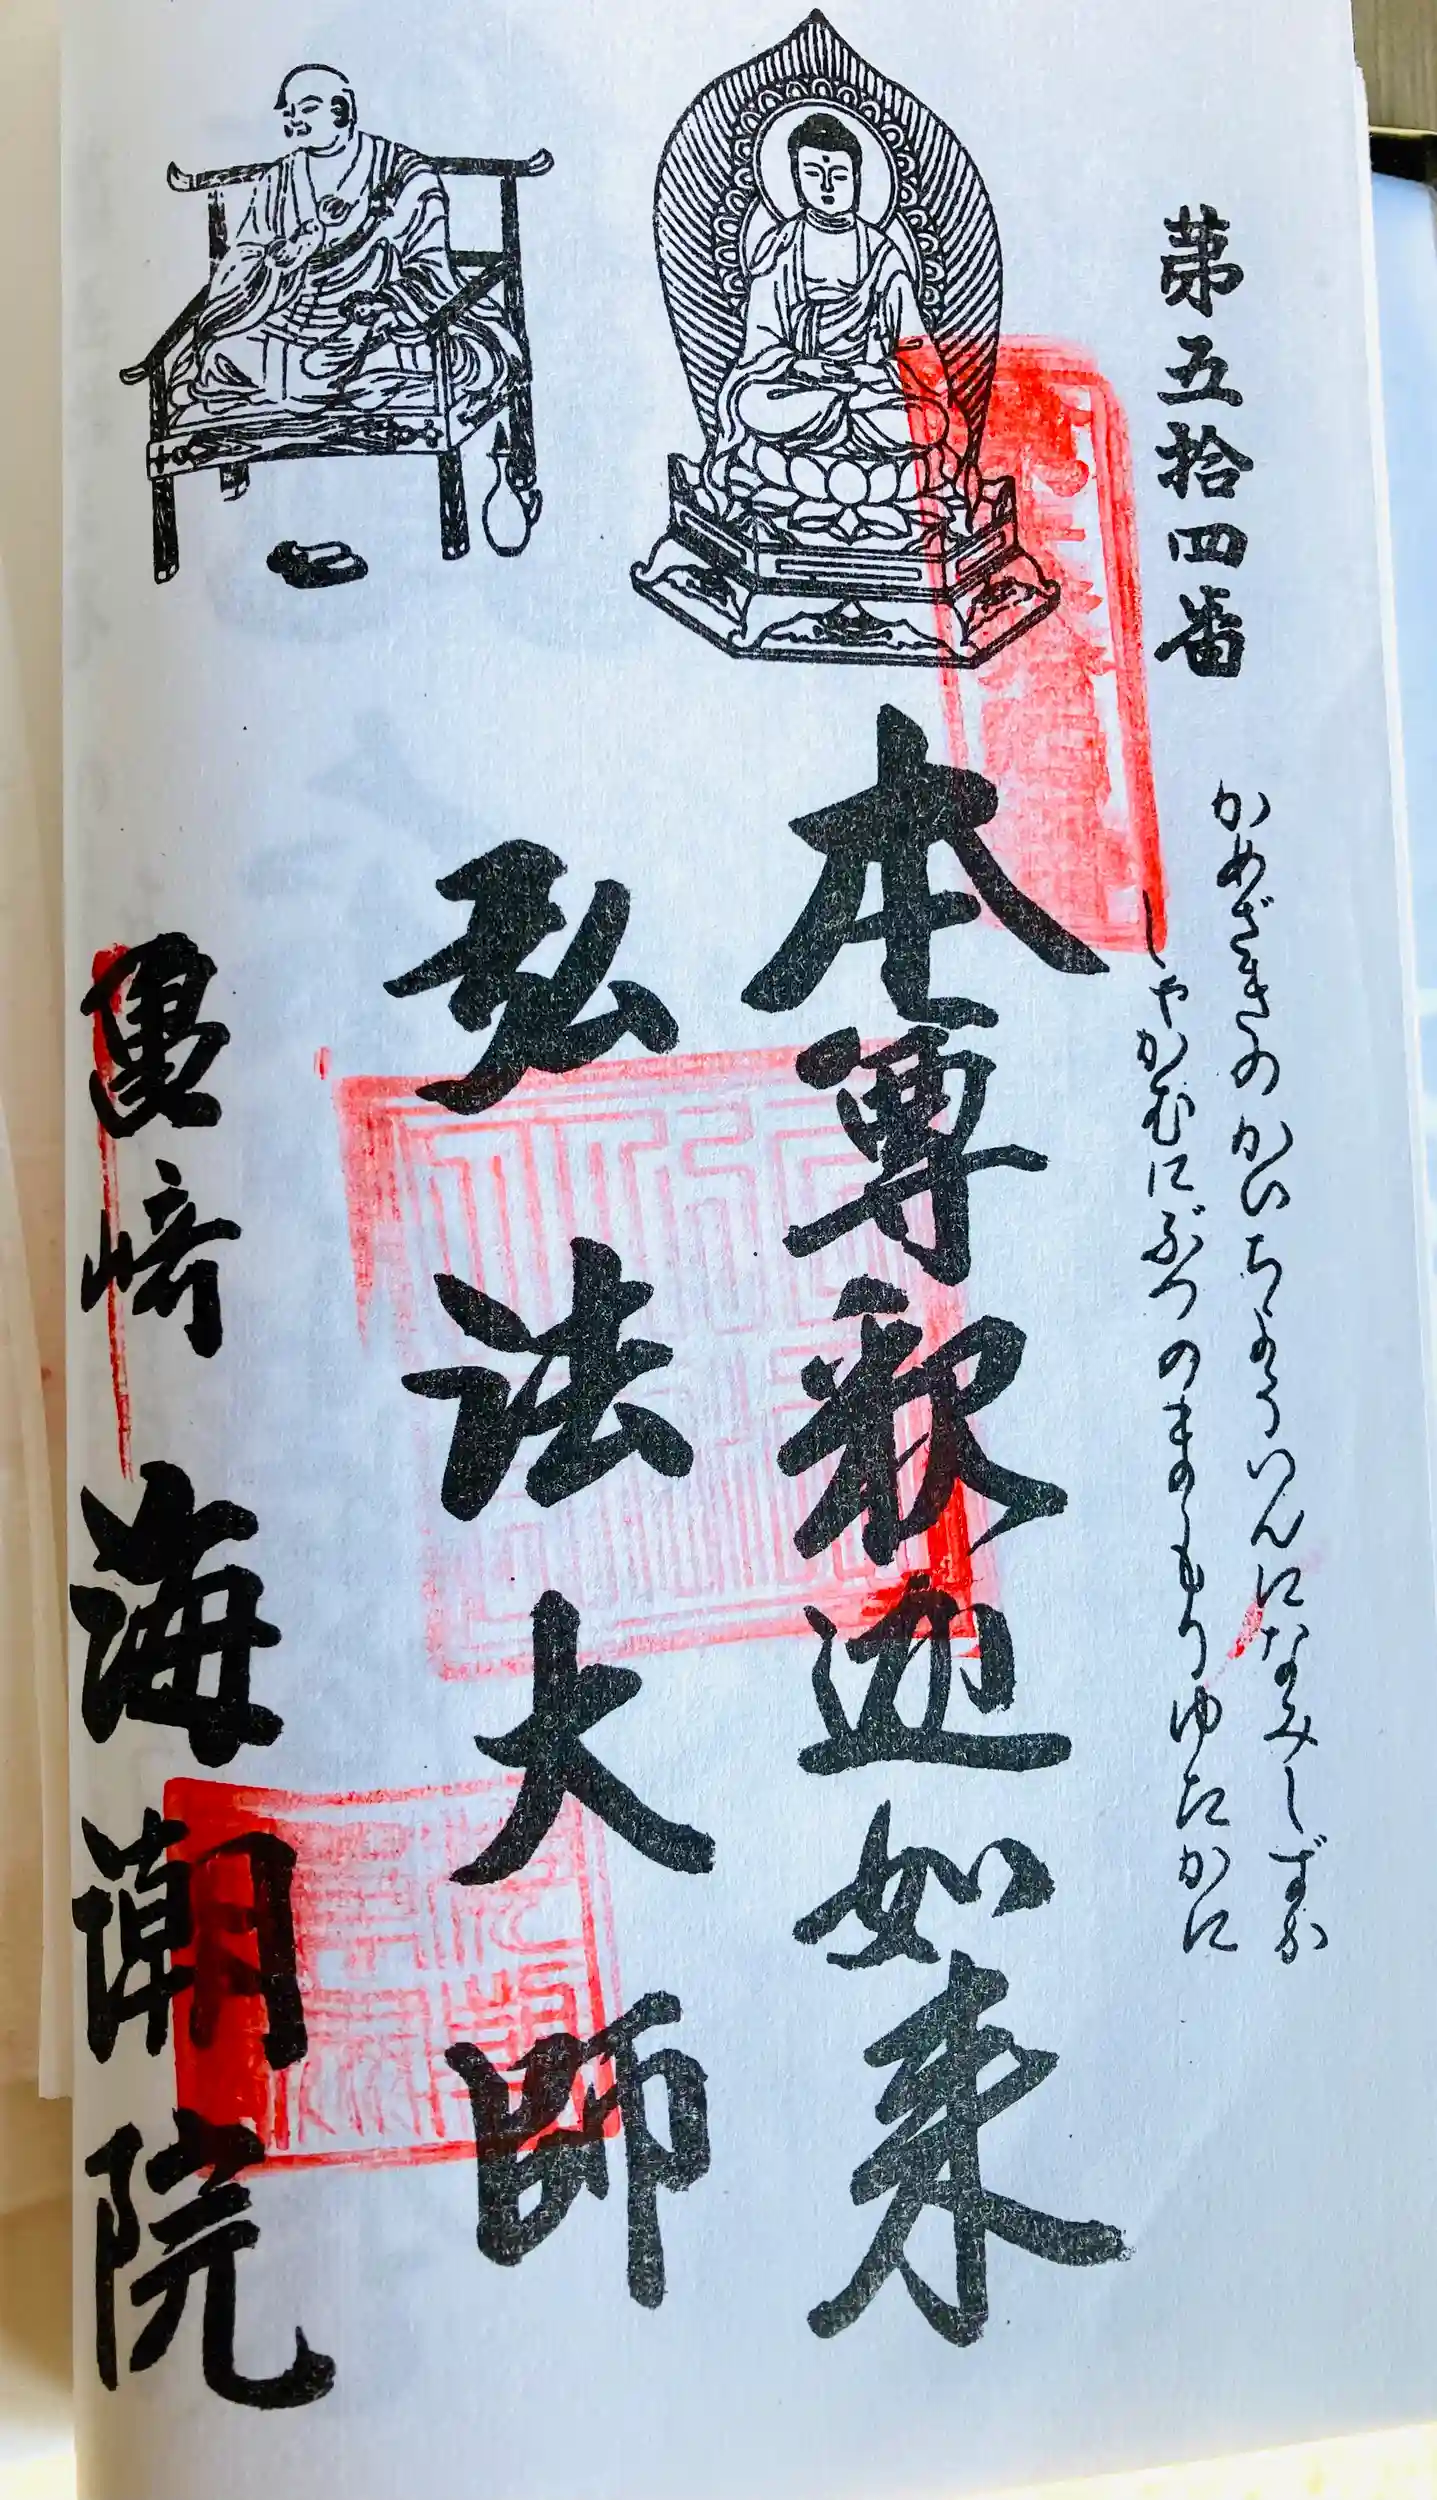 第五拾四番
かめざきのかいちょういんになみしずか
しゃかむにぶつのまもりゆたかに
本尊釈迦如来
弘法大師
亀崎 海潮院